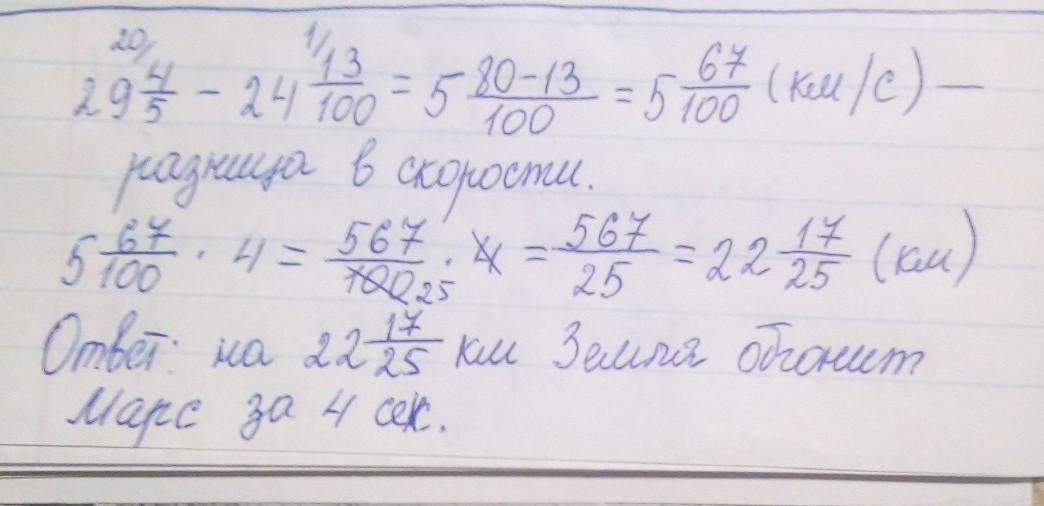 29 4/5 20/ − 24 13/100 1/ = 5 80−13/100 = 5 67/100 (км/с) —
разница в скорости.
5 67/100 · 4 = 567/100 25 · 4 = 567/25 = 22 17/25 (км)
Ответ: на 22 17/25 км Земля обгонит
Марс за 4 сек.